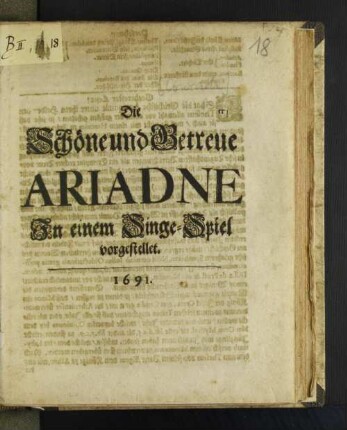 B II 18
18
Die
Schöne und Getreue
ARIADNE
In einem Singe-Spiel
vorgestellet.
1691.